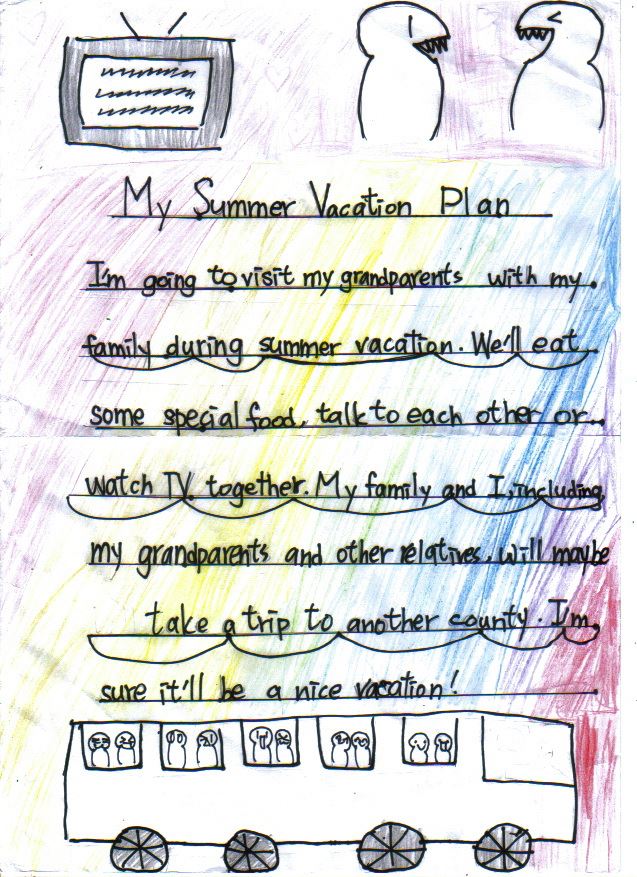 My Summer Vacation Plan
I'm going to visit my grandparents with my
family during summer vacation. We'll eat
some special food, talk to each other or
watch TV together. My family and I, including
my grandparents and other relatives, will maybe
take a trip to another county. I'm
sure it'll be a nice vacation!